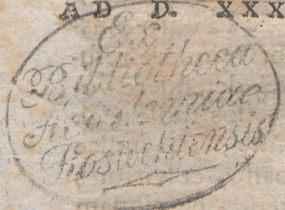 AD D. XXX
Ex
Bibliotheca
Academiae
Rostochiensis